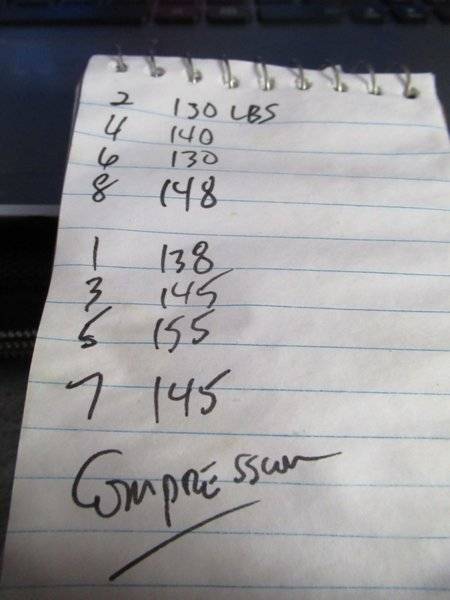 2 130 LBS
4 140
6 130
8 148
1 138
3 145
5 155
7 145
Compression